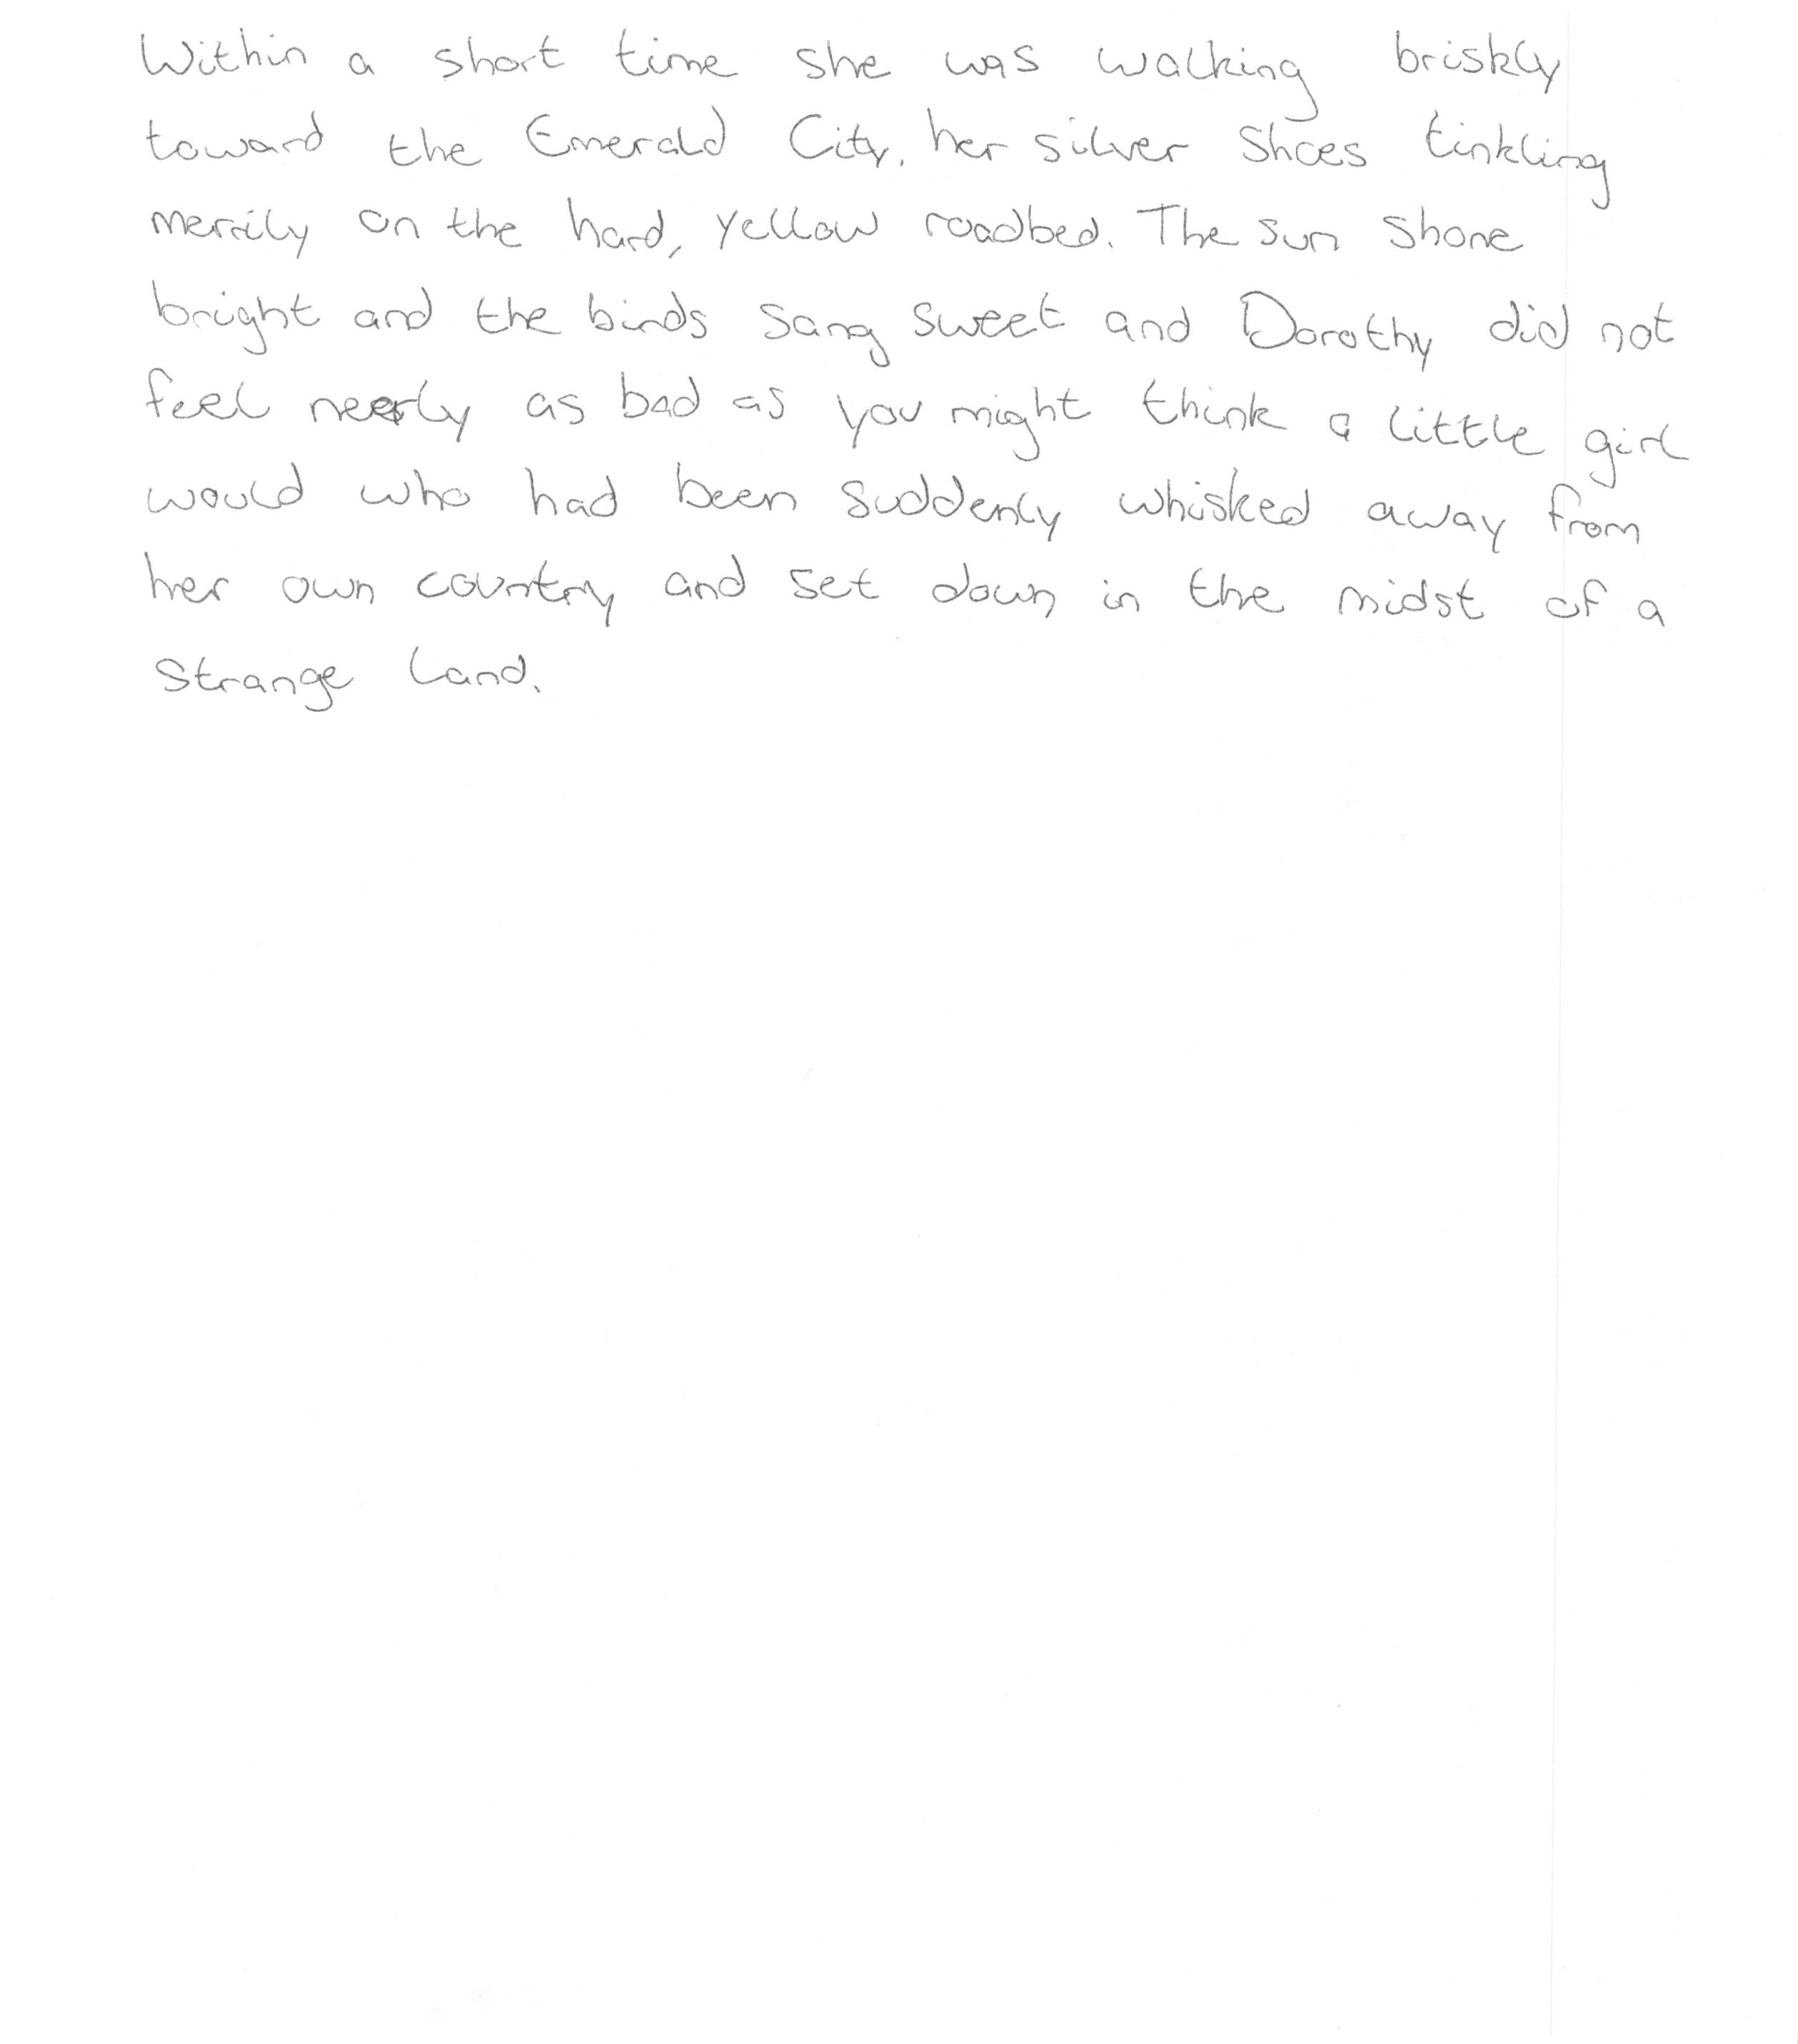 Within a short time she was walking briskly
toward the Emerald City, her silver Shoes tinkling
merrily on the hard, yellow roadbed. The sun shone
bright and the birds sang sweet and Dorothy did not
feel nearly as bad as you might think a little girl
would who had been suddenly whisked away from
her own country and set down in the midst of a
strange land.